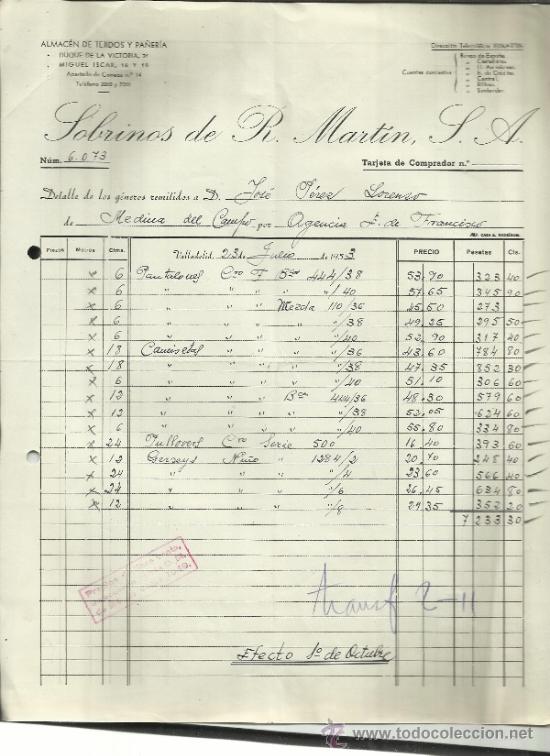 ALMACÉN DE TEJIDOS Y PAÑERÍA
DUQUE DE LA VICTORIA,
MIGUEL ISCAR, 16 Y 18
Apartado de Correos n.º 14
Banco de España.
" Castellano.
Cuentas corrientes
" H. Americano.
" E. de Crédito.
" Central.
" Bilbao.
" Santander.
Sobrinos de R. Martín, S. A.
Núm. 6.073
Tarjeta de Comprador n.º
Detalle de los géneros remitidos a D. José Pérez Lorenzo
de Medina del Campo por Agencia de Francisco
Piezas Metros Ctms. Valladolid 23 de Julio de 1953 PRECIO Pesetas Cts.
x 6 Pantalones Cro F Bco 444/38 53.90 323 40
x 6 " " " "/40 57.65 345 90
x 6 " " Mezcla 110/36 45.50 273
x 6 " " " "/38 49.25 295 50
x 6 " " " "/40 52.90 317 40
x 18 Camisetas " " "/36 43.60 784 80
x 18 " " " "/38 47.35 852 30
x 6 " " " "/40 51.10 306 60
x 12 " " Bco 444/36 48.30 579 60
x 12 " " " "/38 52.05 624 60
x 6 " " " "/40 55.80 334 80
x 24 Pullovers Cro Serie 500 16.40 393 60
x 12 Gerseys Niño " 1284/2 20.70 248 40
x 24 " " " "/4 23.60 566 40
x 24 " " " "/6 26.45 634 80
x 12 " " " "/8 29.35 352 20
7 233 30
transf 2-11
Efecto 1º de Octubre
www.todocoleccion.net
todocoleccion.net